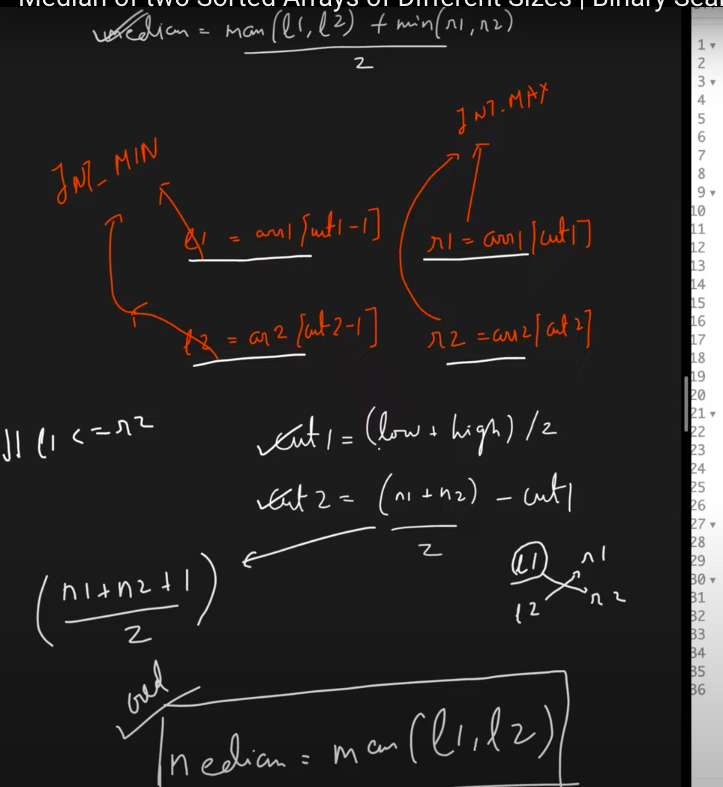 Median of two Sorted Arrays of Different Sizes | Binary Sear
median = max(l1, l2) + min(r1, r2)
2
INT_MAX
INT_MIN
l1 = arr1[cut1-1]
r1 = arr1[cut1]
l2 = ar2[cut2-1]
r2 = arr2[cut2]
l1 <= r2
cut1 = (low + high) / 2
cut2 = (n1 + n2) - cut1
2
(n1 + n2 + 1)
2
l1 r1
l2 r2
odd
median = max(l1, l2)
1
2
3
4
5
6
7
8
9
10
11
12
13
14
15
16
17
18
19
20
21
22
23
24
25
26
27
28
29
30
31
32
33
34
35
36